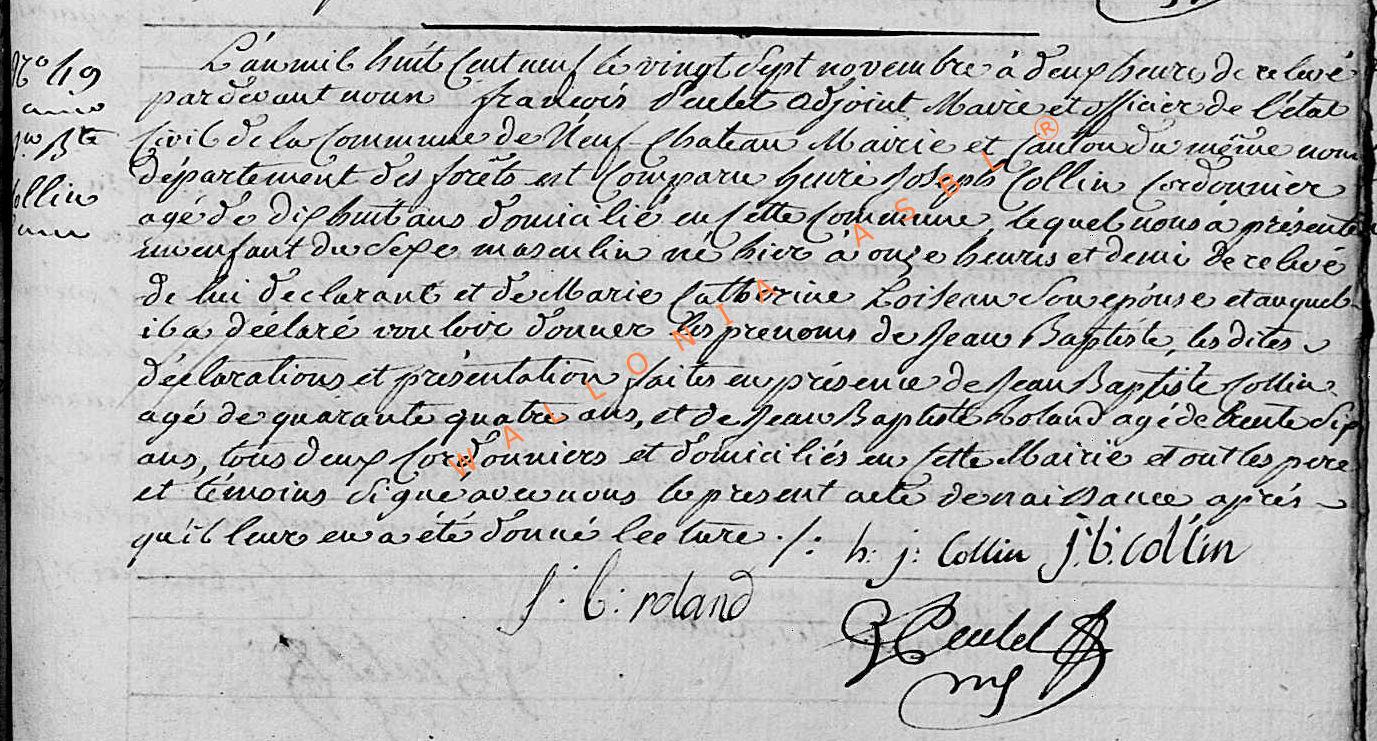 N.º 49
L'an mil huit Cent neuf le vingt Sept novembre à deux heures de relevé
pardevant nous françois Peulet adjoint Maire et officier de l'état
Civil de la Commune de Neuf-Chateau Mairie et Canton du même nom
J.n B.te
département des forêts est Comparu henri Joseph Collin Cordonnier
Collin
agé de dix huit ans domicilié en Cette Commune, lequel nous à présenté
un enfant du Sexe masculin né hier à onze heures et demi de relevé
de lui declarant et de Marie Catherine Loiseau Son epouse et auquel
il a déclaré vouloir donner les prenoms de Jean Baptiste, les dites
déclarations et présentation faites en présence de Jean Baptiste Collin
agé de quarante quatre ans, et de Jean Baptiste Roland agé de trente Six
ans, tous deux Cordonniers et domiciliés en Cette Mairie et ont les pere
et témoins Signé avec nous le present acte de naissance après
qu'il leur en a été donné lecture ./:
h: j: Collin J: b: collin
J: b: roland
Peulet
WALLONIA ASBL ®